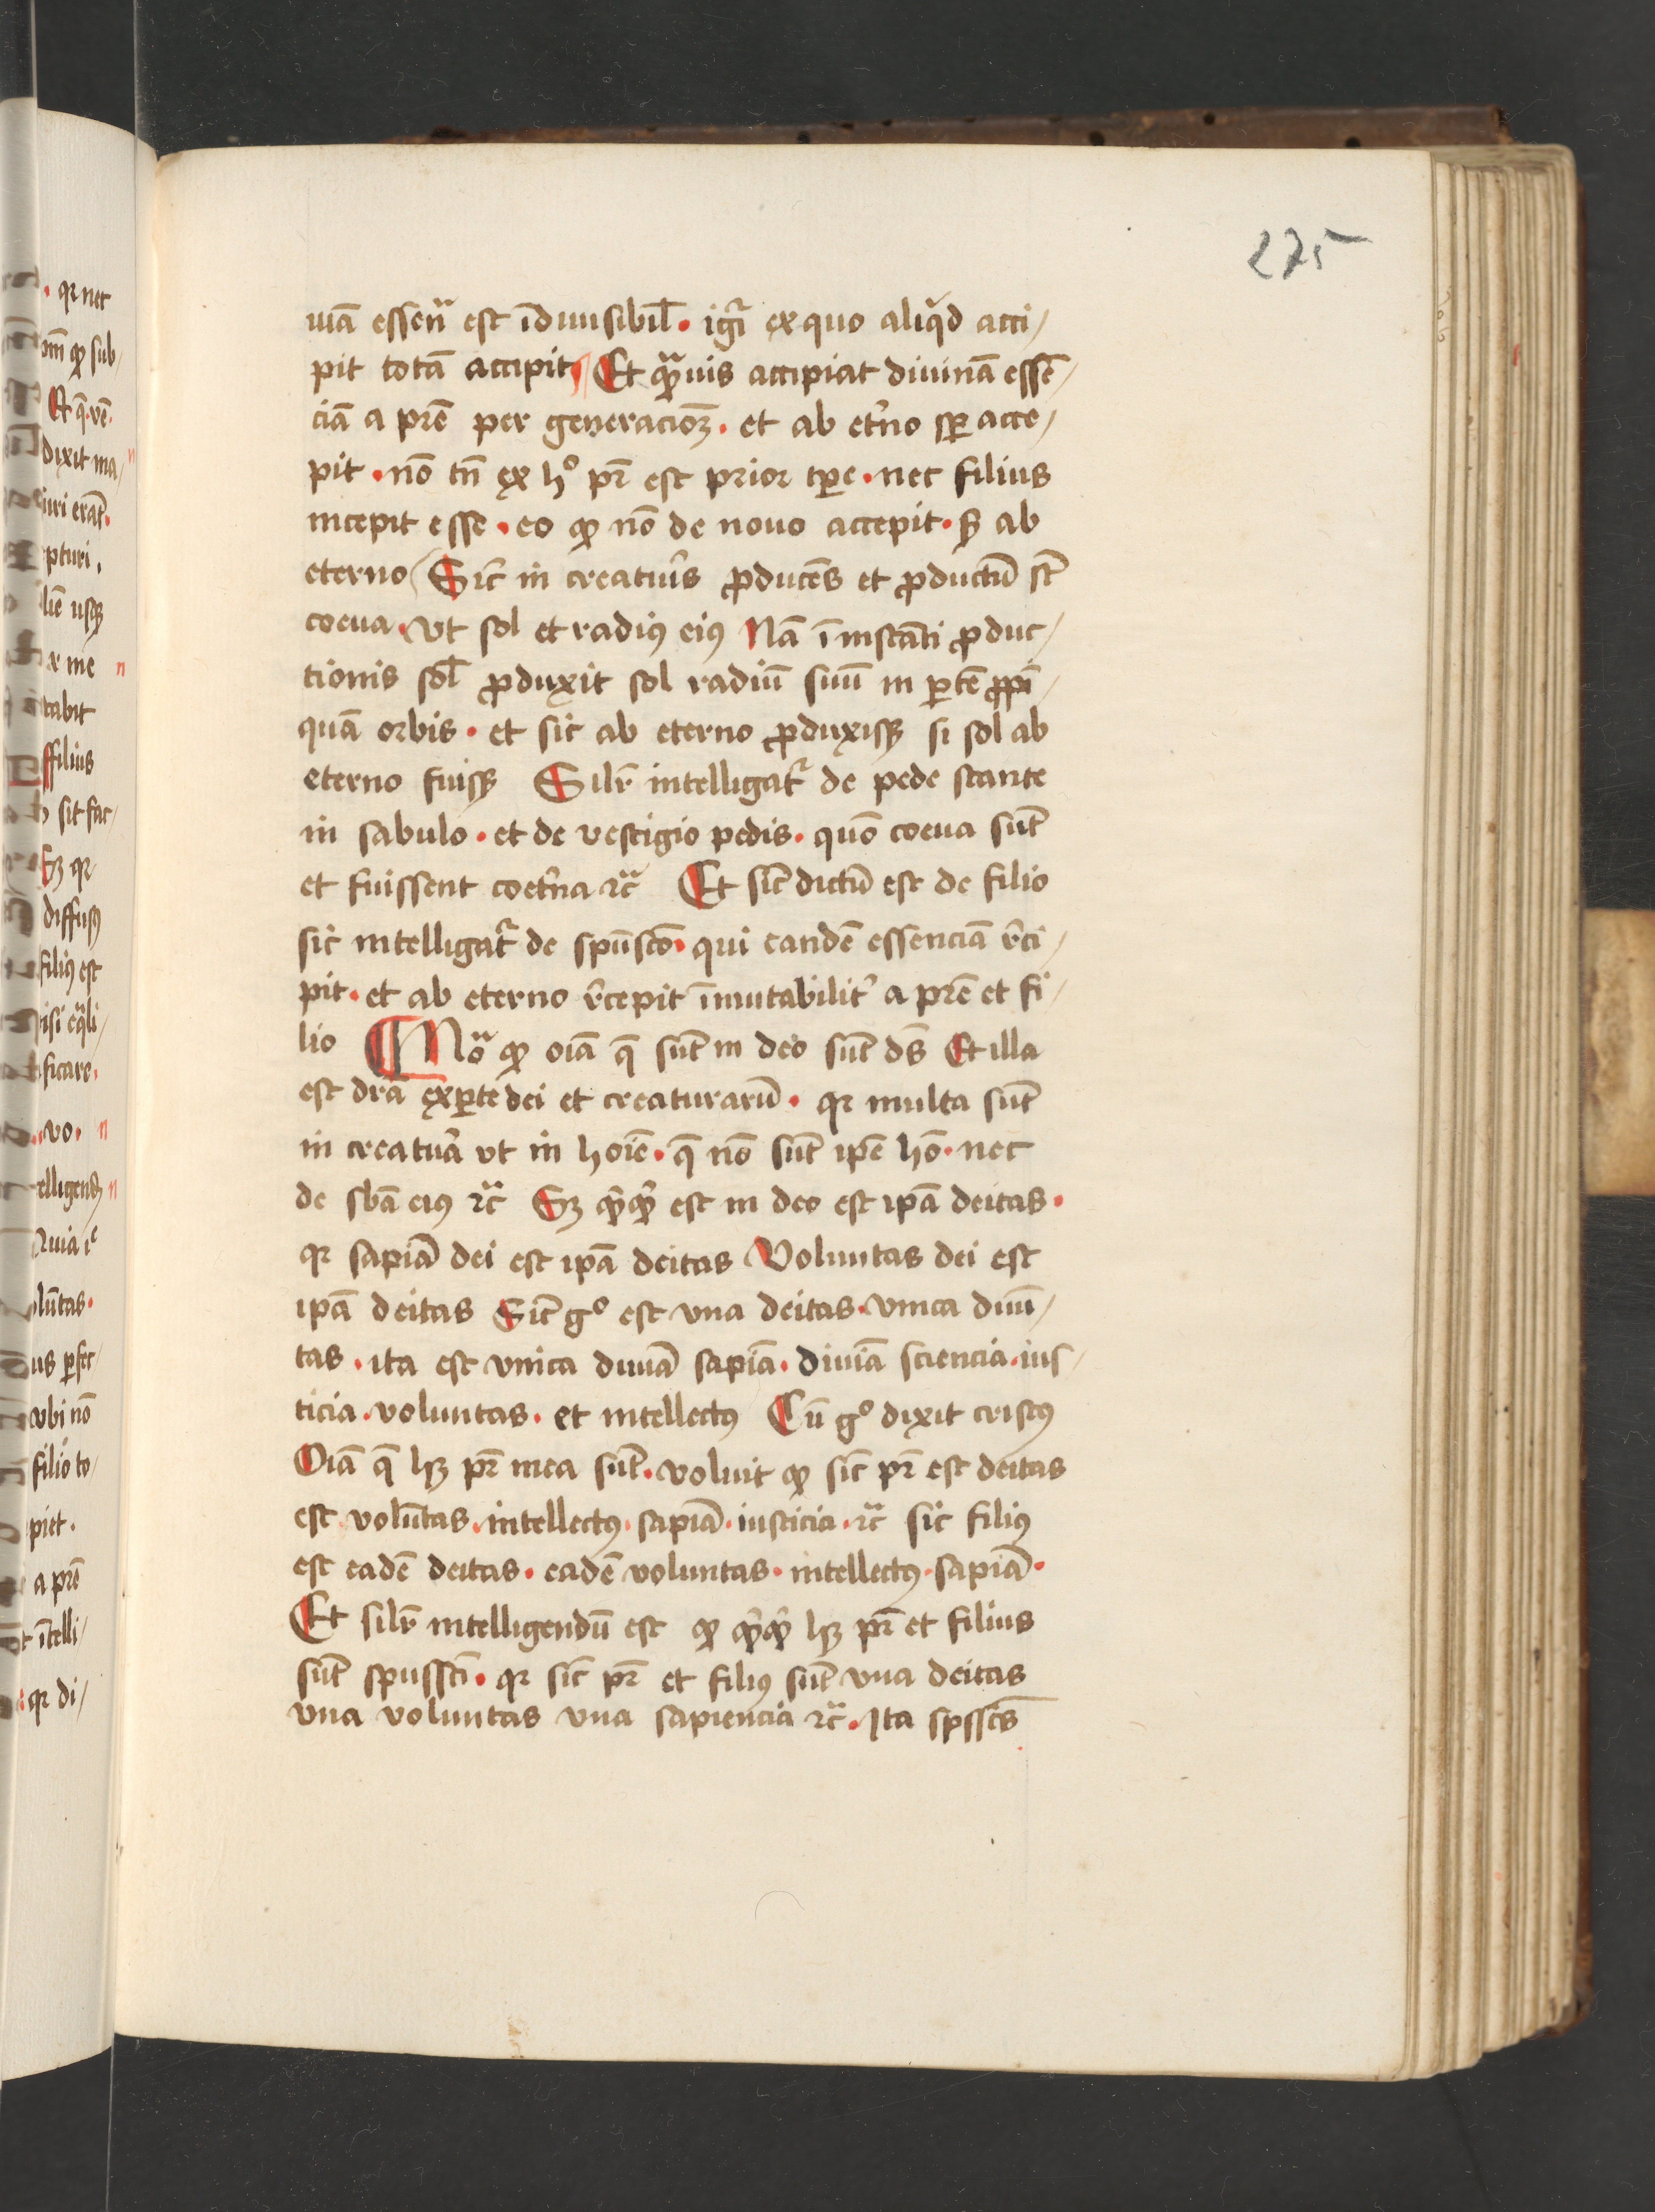 275
uiā essenᷓ est īdiuisibil̄ · igr̄ ex quo aliqͥd acci/
pit totā accipit Et qᷓuis accipiat diuinā essē/
ciā a pr̄e per generacioꝫ · et ab et̓no sꝑ acce/
pit · nō tn̄ ex hº pr̄ est prior tꝑe · nec filius
incepit esse · eo ꝙ nō de nouo accepit · sꝫ ab
eterno Sic̄ in creatur̓s ꝓducēs et ꝓductū st̄
coeua · vt sol et radiꝰ eiꝰ Nā ī instāti ꝓduc/
tionis sol̄ ꝓduxit sol radiū suū in ꝑtē ꝓpī/
quā orbis · et sic ab eterno ꝓduxisꝫ si sol ab
eterno fuisꝫ Silr̄ intelligat᷑ de pede stante
in sabulo · et de vestigio pedis · quō coeua sūt
et fuissent coet̓na ⁊c̄ Et sic̄ dictū est de filio
sic intelligat᷑ de spūscō · qui eandē essenciā r̄ci/
pit · et ab eterno r̄cepit īmutabilit̓ a pr̄e et fi/
lio Noᷓ ꝙ oīa q̄ sūt in deo sūt ds̄ Et illa
est dr̄a ex ꝑte dei et creaturarū · qꝛ multa sūt
in creatur̓a vt in hoīe · q̄ nō sūt ip̄e hō · nec
de sb̄a eiꝰ ⁊c̄ Sꝫ qͥcqͥd est in deo est ip̄a deitas ·
qꝛ sapīa dei est ip̄a deitas Voluntas dei est
ip̄a deitas Sic̄ gº est vna deitas · vnica diuī/
tas · ita est vnica diuīa sapīa · diuīa sciencia · ius/
ticia · voluntas · et intellectꝰ Cū gº dixit cristꝰ
Oīa q̄ hꝫ pr̄ mea sūt · voluit ꝙ sic̄ pr̄ est deitas
est volūtas · intellectꝰ · sapīa · iusticia · ⁊c̄ sic filiꝰ
est eadē deitas · eadē voluntas · intellectꝰ · sapīa ·
Et silr̄ intelligendū est ꝙ qͥcqͥd hꝫ pr̄ et filius
sūt spūssct̄i · qꝛ sic̄ pr̄ et filiꝰ sūt vna deitas
vna voluntas vna sapiencia ⁊c̄ · Ita spsscs̄